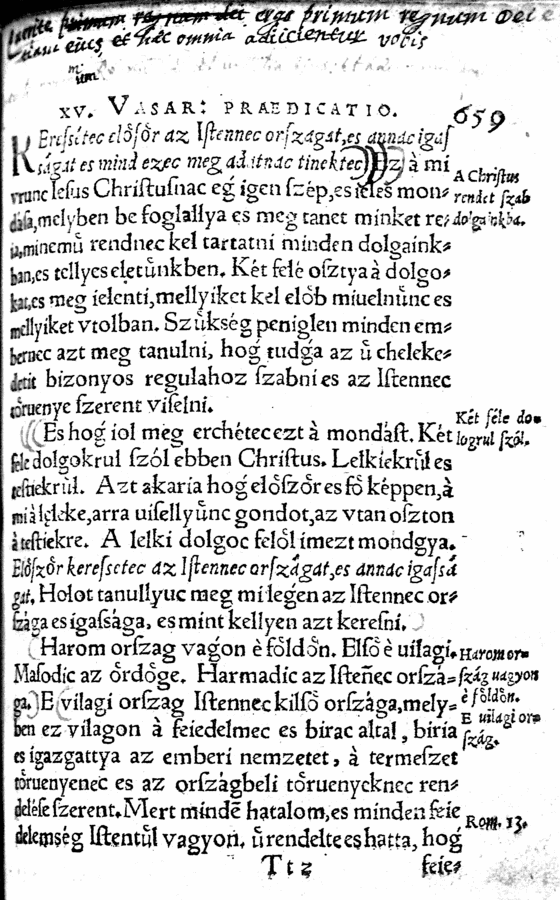 ergo primum regnum Dei
eius, et hæc omnia adiicientur vobis
XV. VASAR: PRAEDICATIO. 659
KEreſſétec elo̗ſo̗r az Iſtennec orſzágat, es annac igaſ
ságat es mind ezec meg adatnac tinektec) Ez à mi
vrunc Ieſus Chriſtuſnac eǵ igen ſzép, es ieles mon⸗
dáſa, melyben be foglallya es meg tanet minket re⸗
ia, minemű rendnec kel tartatni minden dolgaink⸗
ban, es tellyes eletűnkben. Két felé oſztya à dolgo⸗
kat, es meg ielenti, mellyiket kel elo̗b miuelnűnc es
mellyiket vtolban. Szűkség peniglen minden em⸗
bernec azt meg tanulni, hoǵ tudǵa az ű cheleke⸗
detit bizonyos regulahoz ſzabni es az Iſtennec
to̗ruenye ſzerent viſelni.
Es hoǵ iol meg erchétec ezt à mondáſt. Két
féle dolgokrul ſzól ebben Chriſtus. Lelkiekrűl es
teſtiekrűl. Azt akaria hoǵ elo̗ſzo̗r es fo̗ képpen, à
mi à léleke, arra uiſellyűnc gondot, az vtan oſzton
à teſtiekre. A lelki dolgoc felo̗l imezt mondgya.
Elo̗ſzo̗r kereſſetec az Iſtennec orſzágat, es annac igaſſá
gat. Holot tanullyuc meg mi legen az Iſtennec or⸗
ſzága es igaſſága, es mint kellyen azt kereſni.
Harom orſzag vaǵon è fo̗ldo̗n. Elſo̗ è uilagi.
Maſodic az o̗rdo̗ge. Harmadic az Iſteñec orſzá⸗
ga. E vilagi orſzag Iſtennec kilſo̗ orſzága, mely⸗
ben ez vilagon à feiedelmec es birac altal, biria
es igazgattya az emberi nemzetet, à termeſzet
to̗ruenyenec es az orſzágbeli to̗ruenyecknec ren⸗
deléſe ſzerent. Mert mindē hatalom, es minden feie
delemség Iſtentűl vagyon. ű rendelte es hatta, hoǵ
Ttz feie⸗
A Chriſtus
rendet ſzab
dolgainkba.
Két féle do⸗
logrul ſzól.
Harom or⸗
ſzág uagyon
è fo̗ldo̗n.
E uilagi or⸗
ſzág.
Rom. 13.